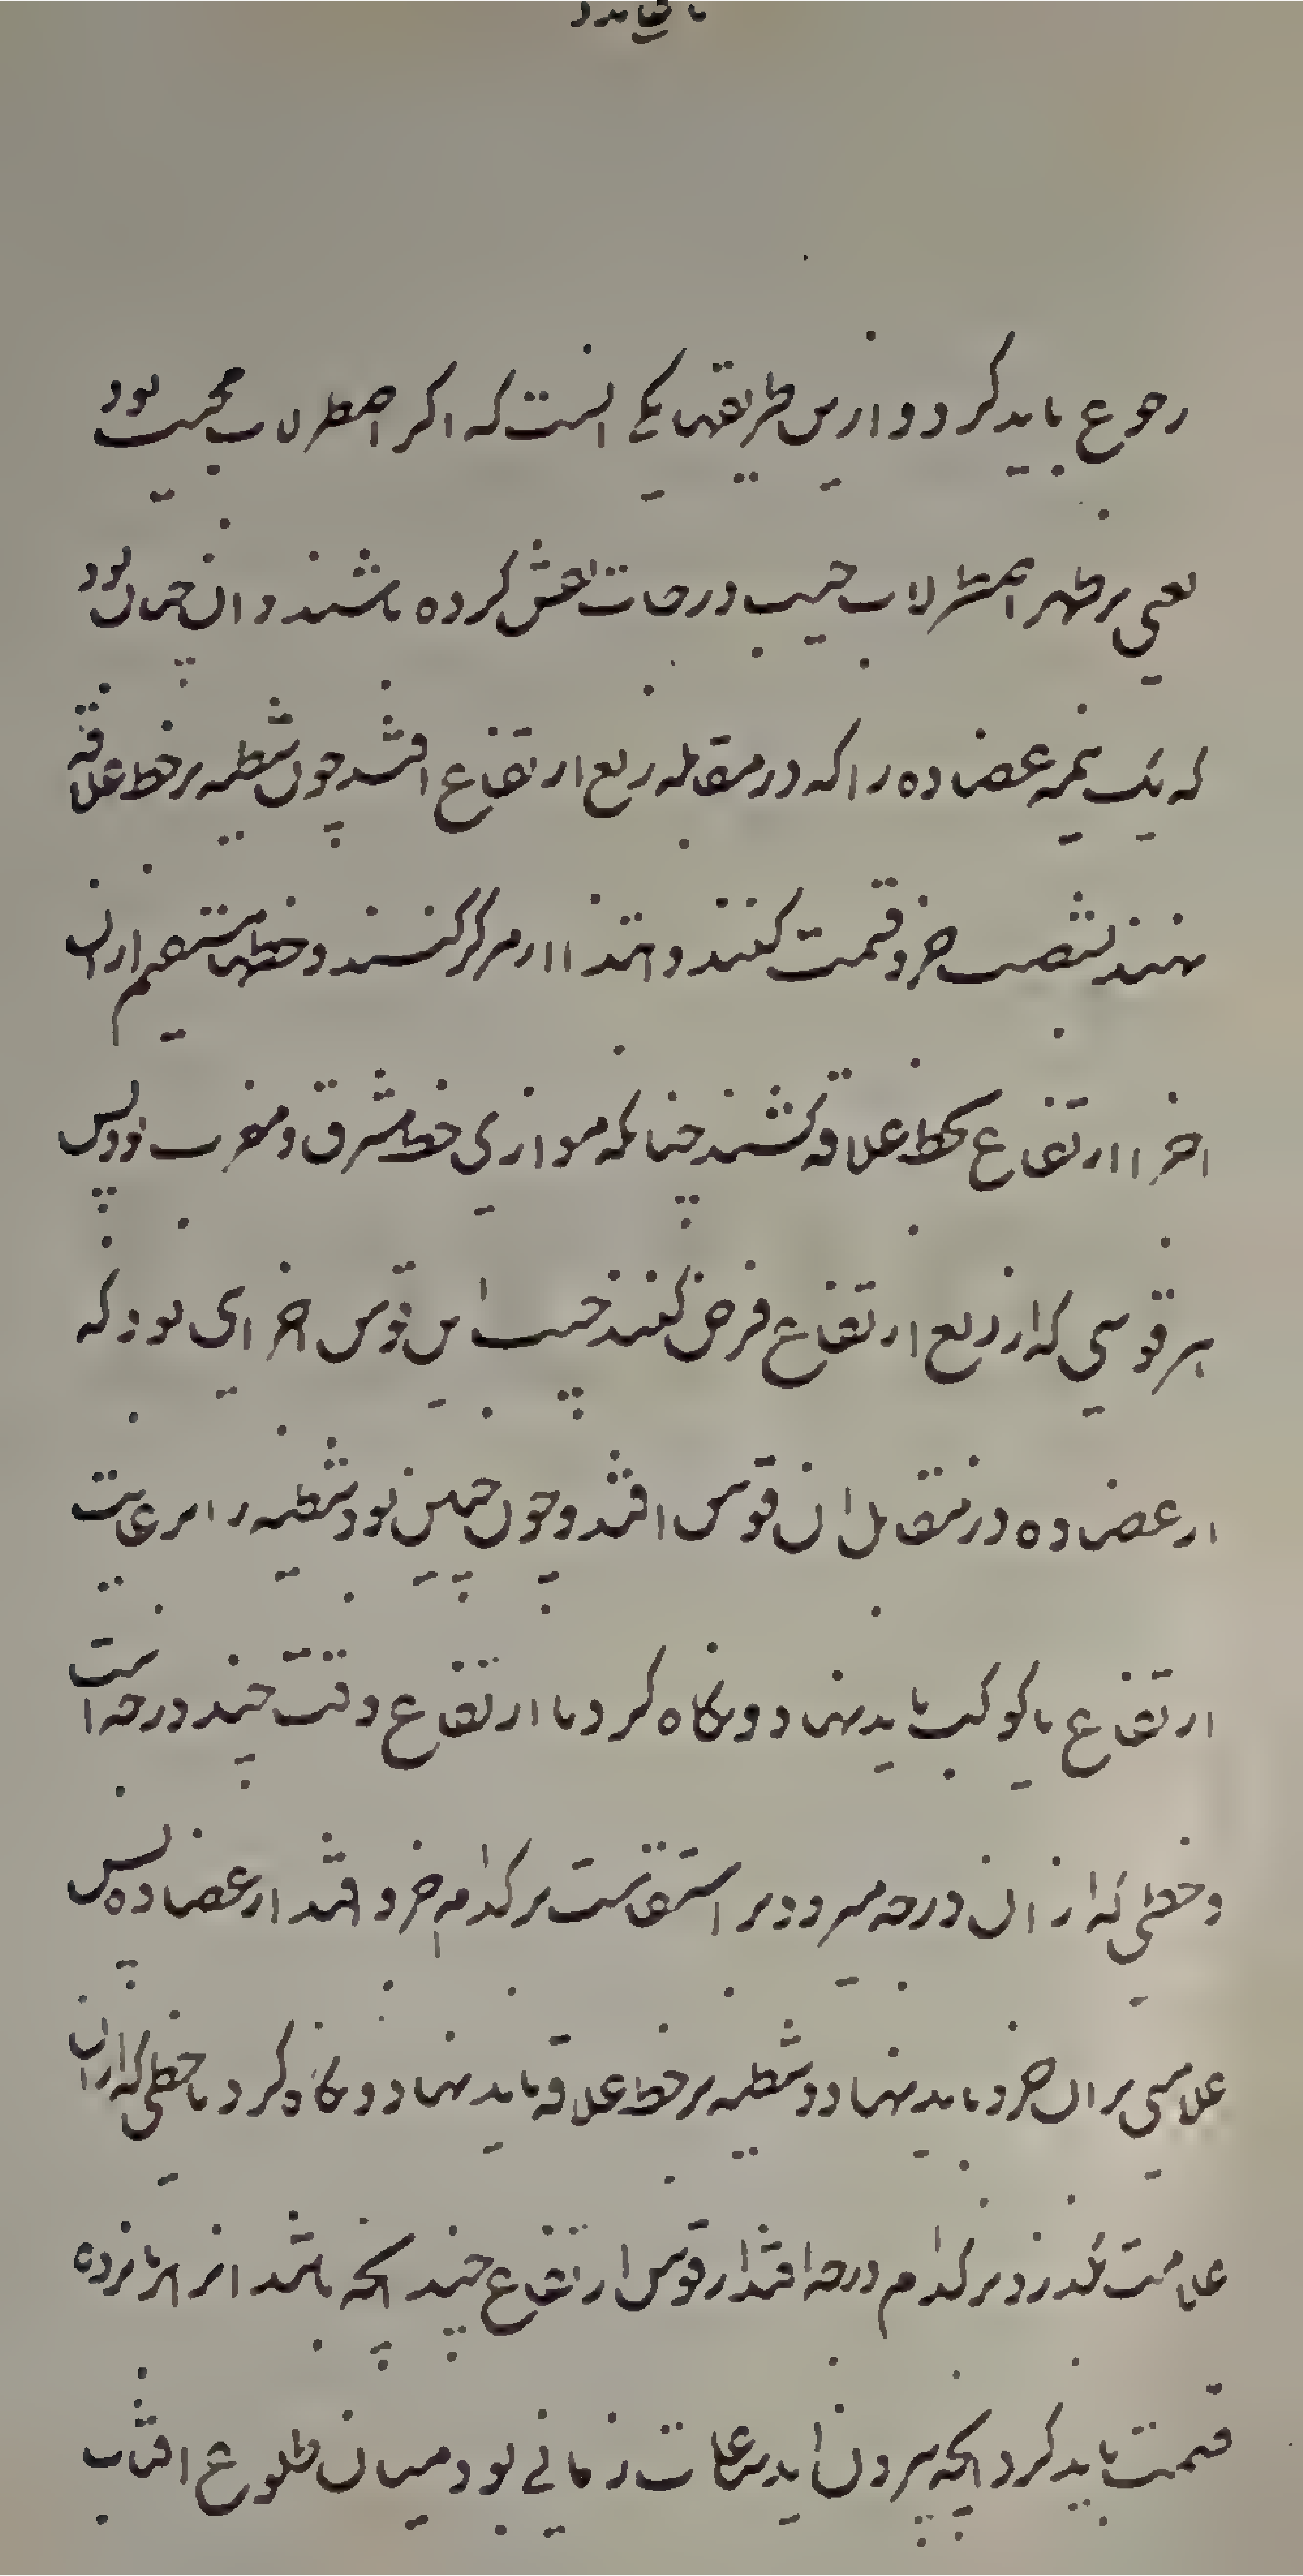 رجوع باید کرد و ازین طریقها یکی انست که اکر اصطرلاب مجیب بود
یعنی بر ظهر اصطرلاب جیب و درجات نقش کرده باشند و ان چنان بود
که یک نیمه عضاده را که در مقابله ربع ارتفاع افتد چون شظیه بر خط علاقه
نهند بشصت جزو قسمت کنند و ابتدا از مرکز کنند و خطها مستقیم از ان
اجزا ارتفاع بخط علاقه کشند چنانکه موازی خط مشرق و مغرب بود پس
هر قوسی که از ربع ارتفاع فرض کنند جیب این قوس اجزای بود که
از عضاده در مقابل ان قوس افتد و چون چنین بود شظیه را بر غایت
ارتفاع یا کوکب باید نهاد و نکاه کرد تا ارتفاع وقت چند درجه است
و خطی که از ان درجه میرود بر استقامت بر کدام جزو افتد از عضاده پس
علامتی بر ان جزو باید نهاد و شظیه بر خط علاقه باید نهاد و نکاه کرد تا خطی که از ان
علامت بکذرد بر کدام درجه افتد از قوس ارتفاع چند انچه باشد انرا بر پانزده
قسمت باید کرد انچه بیرون اید ساعات زمانی بود میان طلوع افتاب